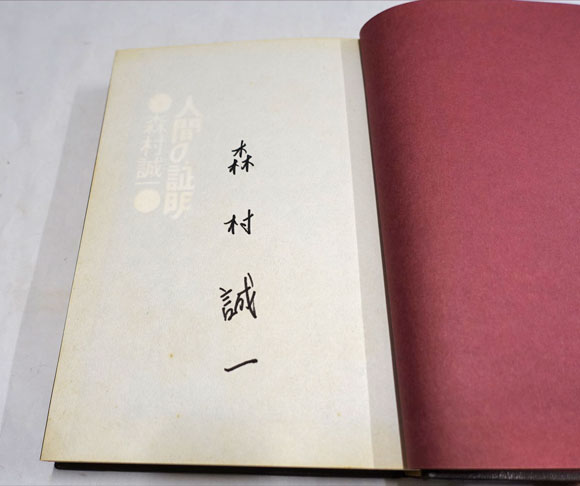 森村誠一
人間の証明
森村誠一